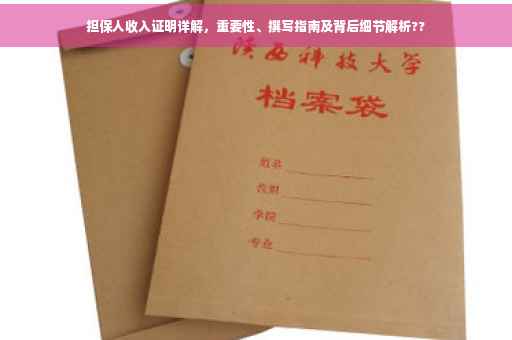 担保人收入证明详解，重要性、撰写指南及背后细节解析??
陕西科技大学
档案袋
姓名
学院
专业